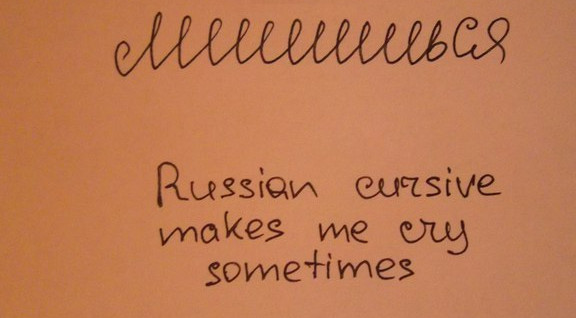 Лишишься
Russian cursive
makes me cry
sometimes